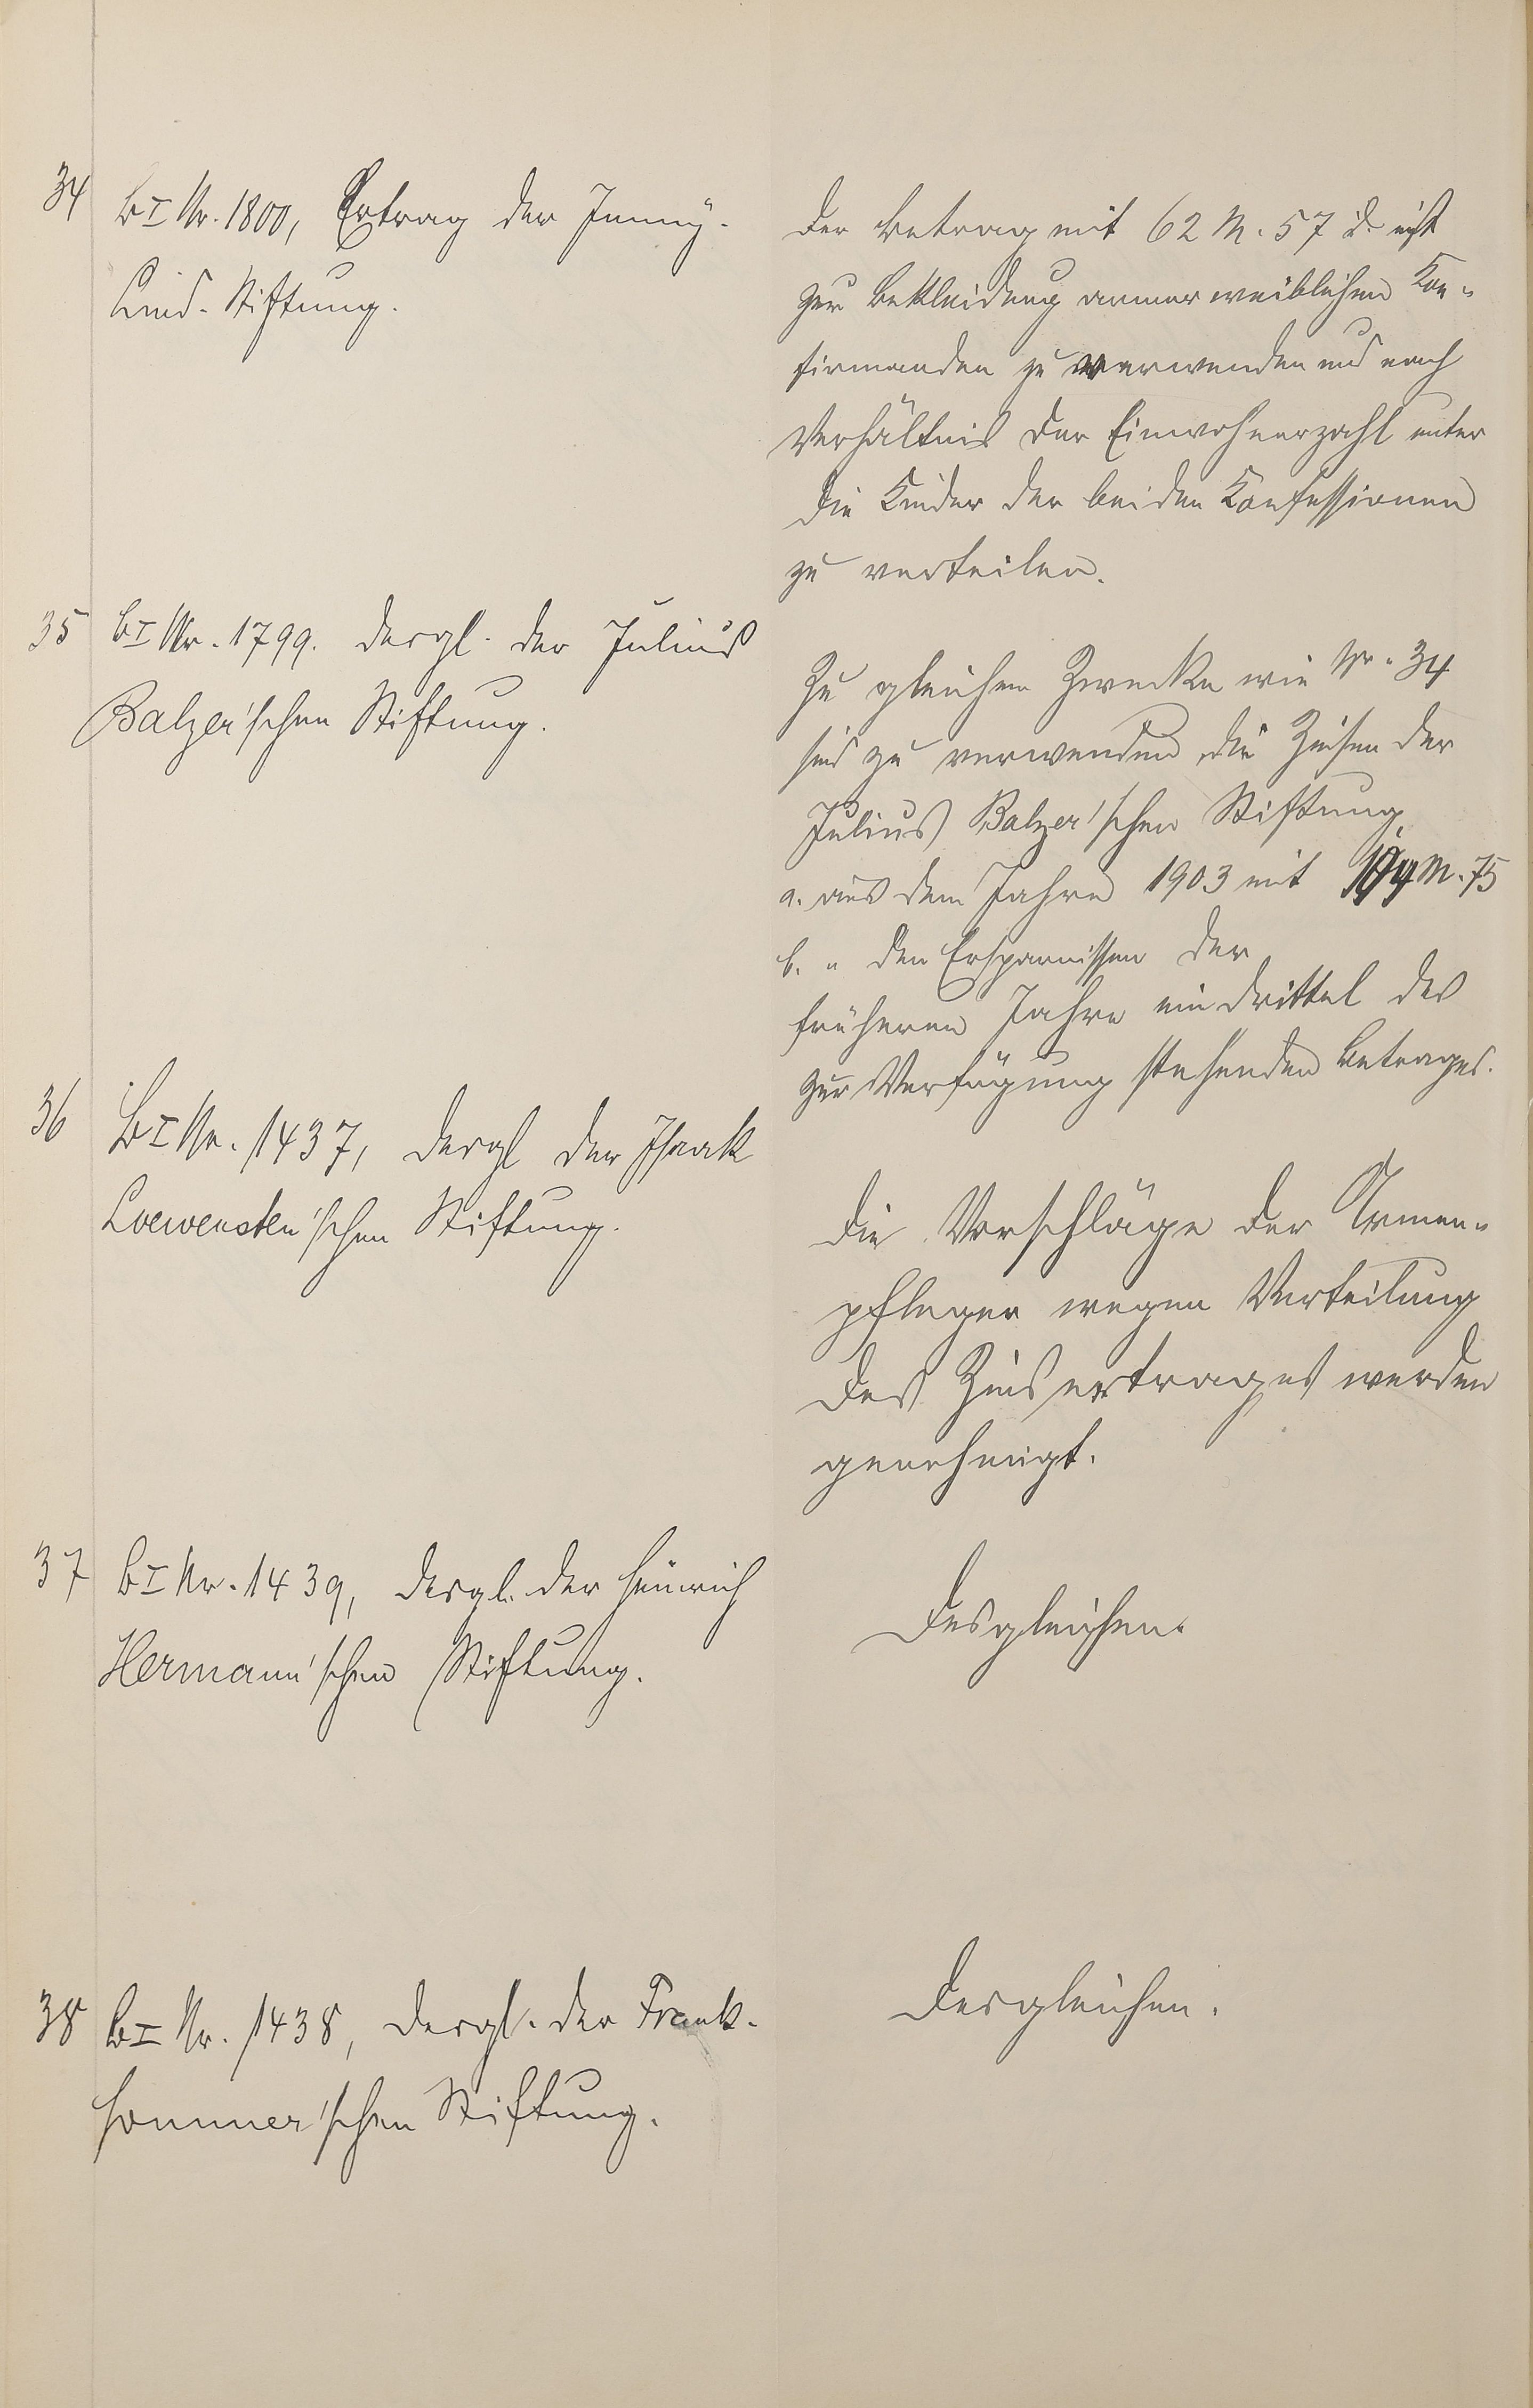 34 B I Nr. 1800, Ertrag der Jenny-
Lind-Stiftung.
Der Betrag mit 62 M. 57 d. ist
zur Bekleidung armer weiblichen Kon-
firmanden zu verwenden und nach
Verhältnis der Einwohnerzahl unter
die Kinder der beiden Konfessionen
zu verteilen.
35 B I Nr. 1799. dergl. der Julius
Balzer'schen Stiftung.
Zu gleichem Zwecke wie Nr. 34
sind zu verwenden die Zinsen der
Julius Balzer'schen Stiftung,
a. aus dem Jahre 1903 mit M. 75
b. " den Ersparnissen der
früheren Jahre ein Drittel des
zur Verfügung stehenden Betrages.
36 B I Nr. 1437, dergl der Isaak
Loewensten'schen Stiftung.
Die Vorschläge der Armen-
pfleger wegen Verteilung
des Zinsertrages werden
genehmigt.
37 B I Nr. 1439, dergl. der Heinrich
Hermann'schen Stiftung.
Desgleichen.
38 B I Nr. 1438, dergl. der Frank-
Sommer'schen Stiftung.
Desgleichen.